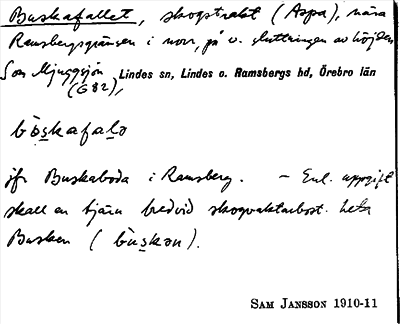 Buskafallet, skogstrakt (Aspa), nära
Ramsbergsgränsen i norr, på v. sluttningen av höjden
S om Mjuggsjön, Lindes sn, Lindes o. Ramsbergs hd, Örebro län
(G 82),
bùskafalə
jfr Buskaboda i Ramsberg. – Enl. uppgift
skall en tjärn bredvid skogvaktarbost. heta
Busken (bùskən).
SAM JANSSON 1910-11